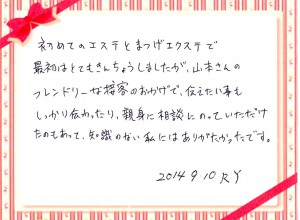 初めてのエステとまつげエクステで
最初はとてもきんちょうしましたが、山本さんの
フレンドリーな接客のおかげで、伝えたい事も
しっかり伝わったり、親身に相談にのっていただけ
たのもあって、知識のない私にはありがたかったです。
2014 9 10 R Y